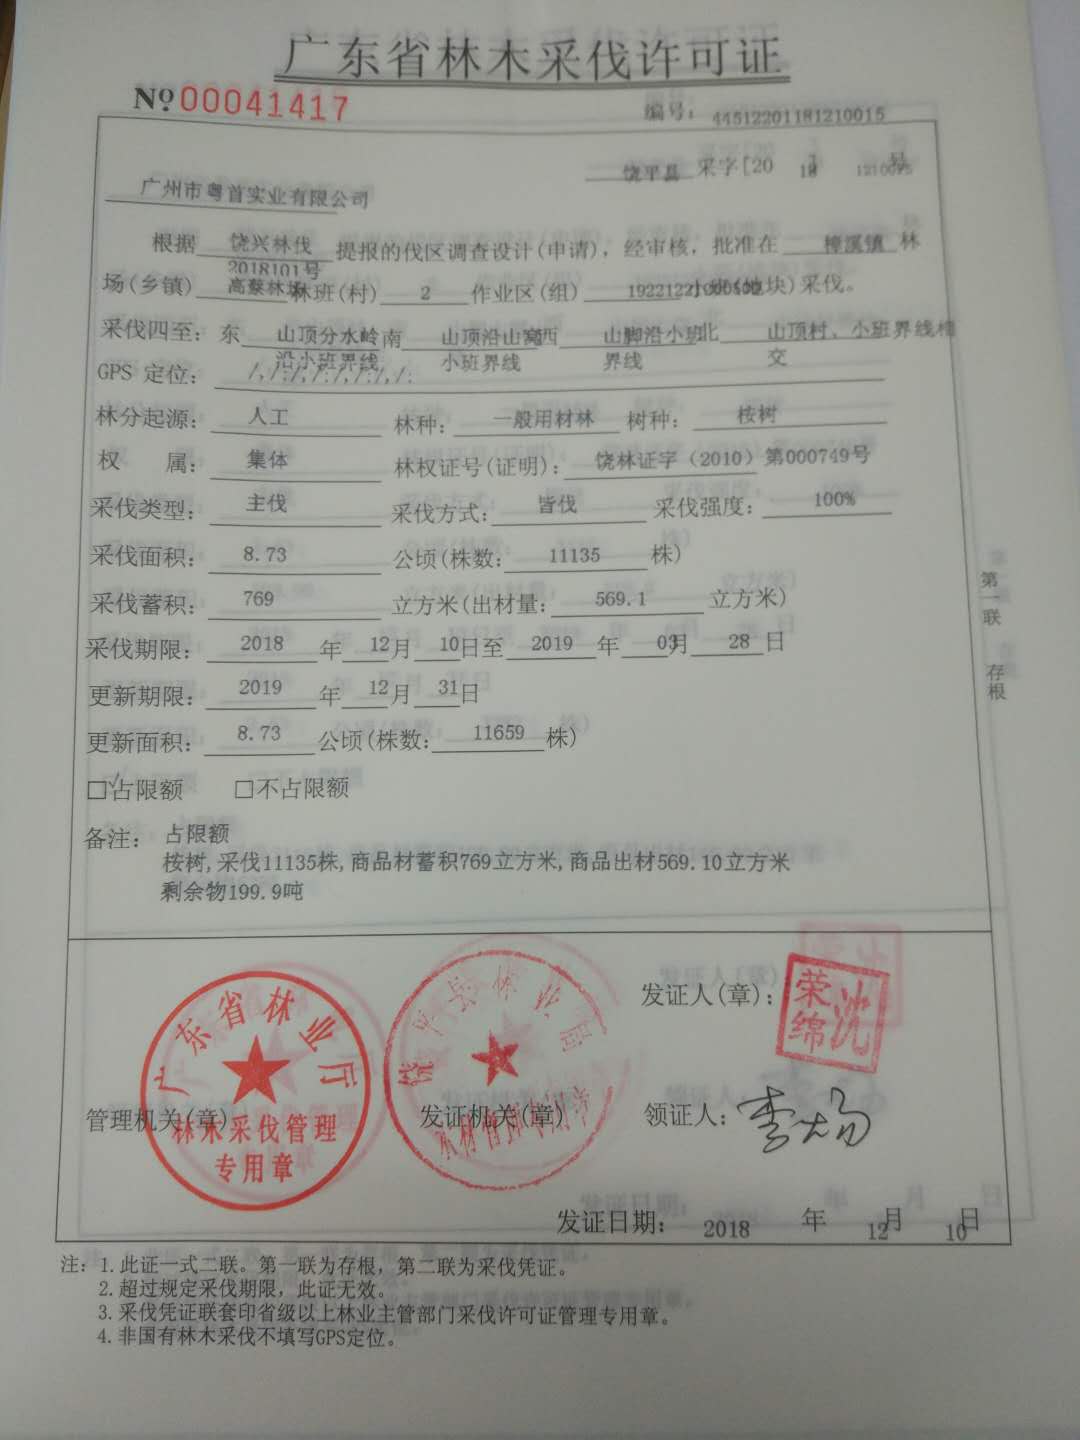 广东省林木采伐许可证
№ 00041417
编号： 44512201181210015
饶平县 采字[20 18 号
广州市粤首实业有限公司
根据 饶兴林伐2018101号 提报的伐区调查设计(申请)，经审核，批准在 樟溪镇 林
场(乡镇) 高蔡林场 林班(村) 2 作业区(组) 小班(地块)采伐。
采伐四至： 东 山顶分水岭沿小班界线 南 山顶沿山窝小班界线 西 山脚沿小班界线 北 山顶村、小班界线相交
GPS 定位： /,/:/,/:/,/:/,/:
林分起源： 人工 林种： 一般用材林 树种： 桉树
权 属： 集体 林权证号(证明)： 饶林证字（2010）第000749号
采伐类型： 主伐 采伐方式： 皆伐 采伐强度： 100%
采伐面积： 8.73 公顷(株数： 11135 株)
采伐蓄积： 769 立方米(出材量： 569.1 立方米)
采伐期限： 2018 年 12 月 10 日至 2019 年 03 月 28 日
更新期限： 2019 年 12 月 31 日
更新面积： 8.73 公顷(株数： 11659 株)
□√占限额 □不占限额
备注： 占限额
桉树,采伐11135株,商品材蓄积769立方米,商品出材569.10立方米
剩余物199.9吨
第一联 存根
发证人(章)： 沈荣绵
管理机关(章) 发证机关(章) 领证人：
广东省林业厅
林木采伐管理
专用章
饶平县林业局
发证日期： 2018 年 12 月 10 日
注： 1.此证一式二联。第一联为存根，第二联为采伐凭证。
2.超过规定采伐期限，此证无效。
3.采伐凭证联套印省级以上林业主管部门采伐许可证管理专用章。
4.非国有林木采伐不填写GPS定位。